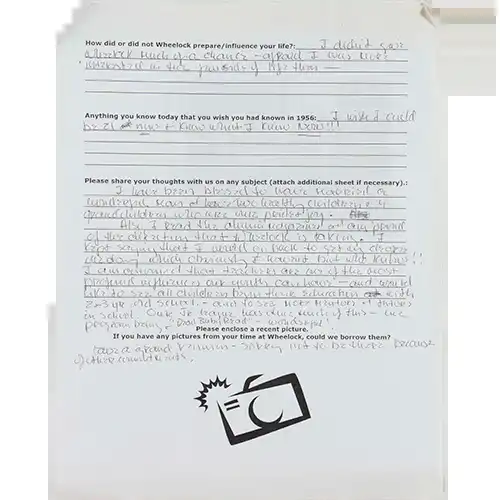 How did or did not Wheelock prepare/influence your life?: I didn't give
Wheelock much of a chance - afraid I was more
interested in the parents of life then -
Anything you know today that you wish you had known in 1956: I wish I could
be 21 now & know what I know Now!!!
Please share your thoughts with us on any subject (attach additional sheet if necessary).:
I have been blessed to have married a
wonderful man & have two healthy children & 4
grandchildren who are our pride & joy.
Also I read the alumni magazine and
of the direction that Wheelock is taking. I
kept saying that I would go back to get my degree
which obviously I haven't but who knows!!
I am convinced that teachers are one of the most
profound influences our youth can have - and would
like to see all children begin their education with
2 & 3 yr old school - and to see
in school. Our
program being
wonderful!
Please enclose a recent picture.
If you have any pictures from your time at Wheelock, could we borrow them?
Have a grand Reunion - sorry not to be there because
of other commitments.